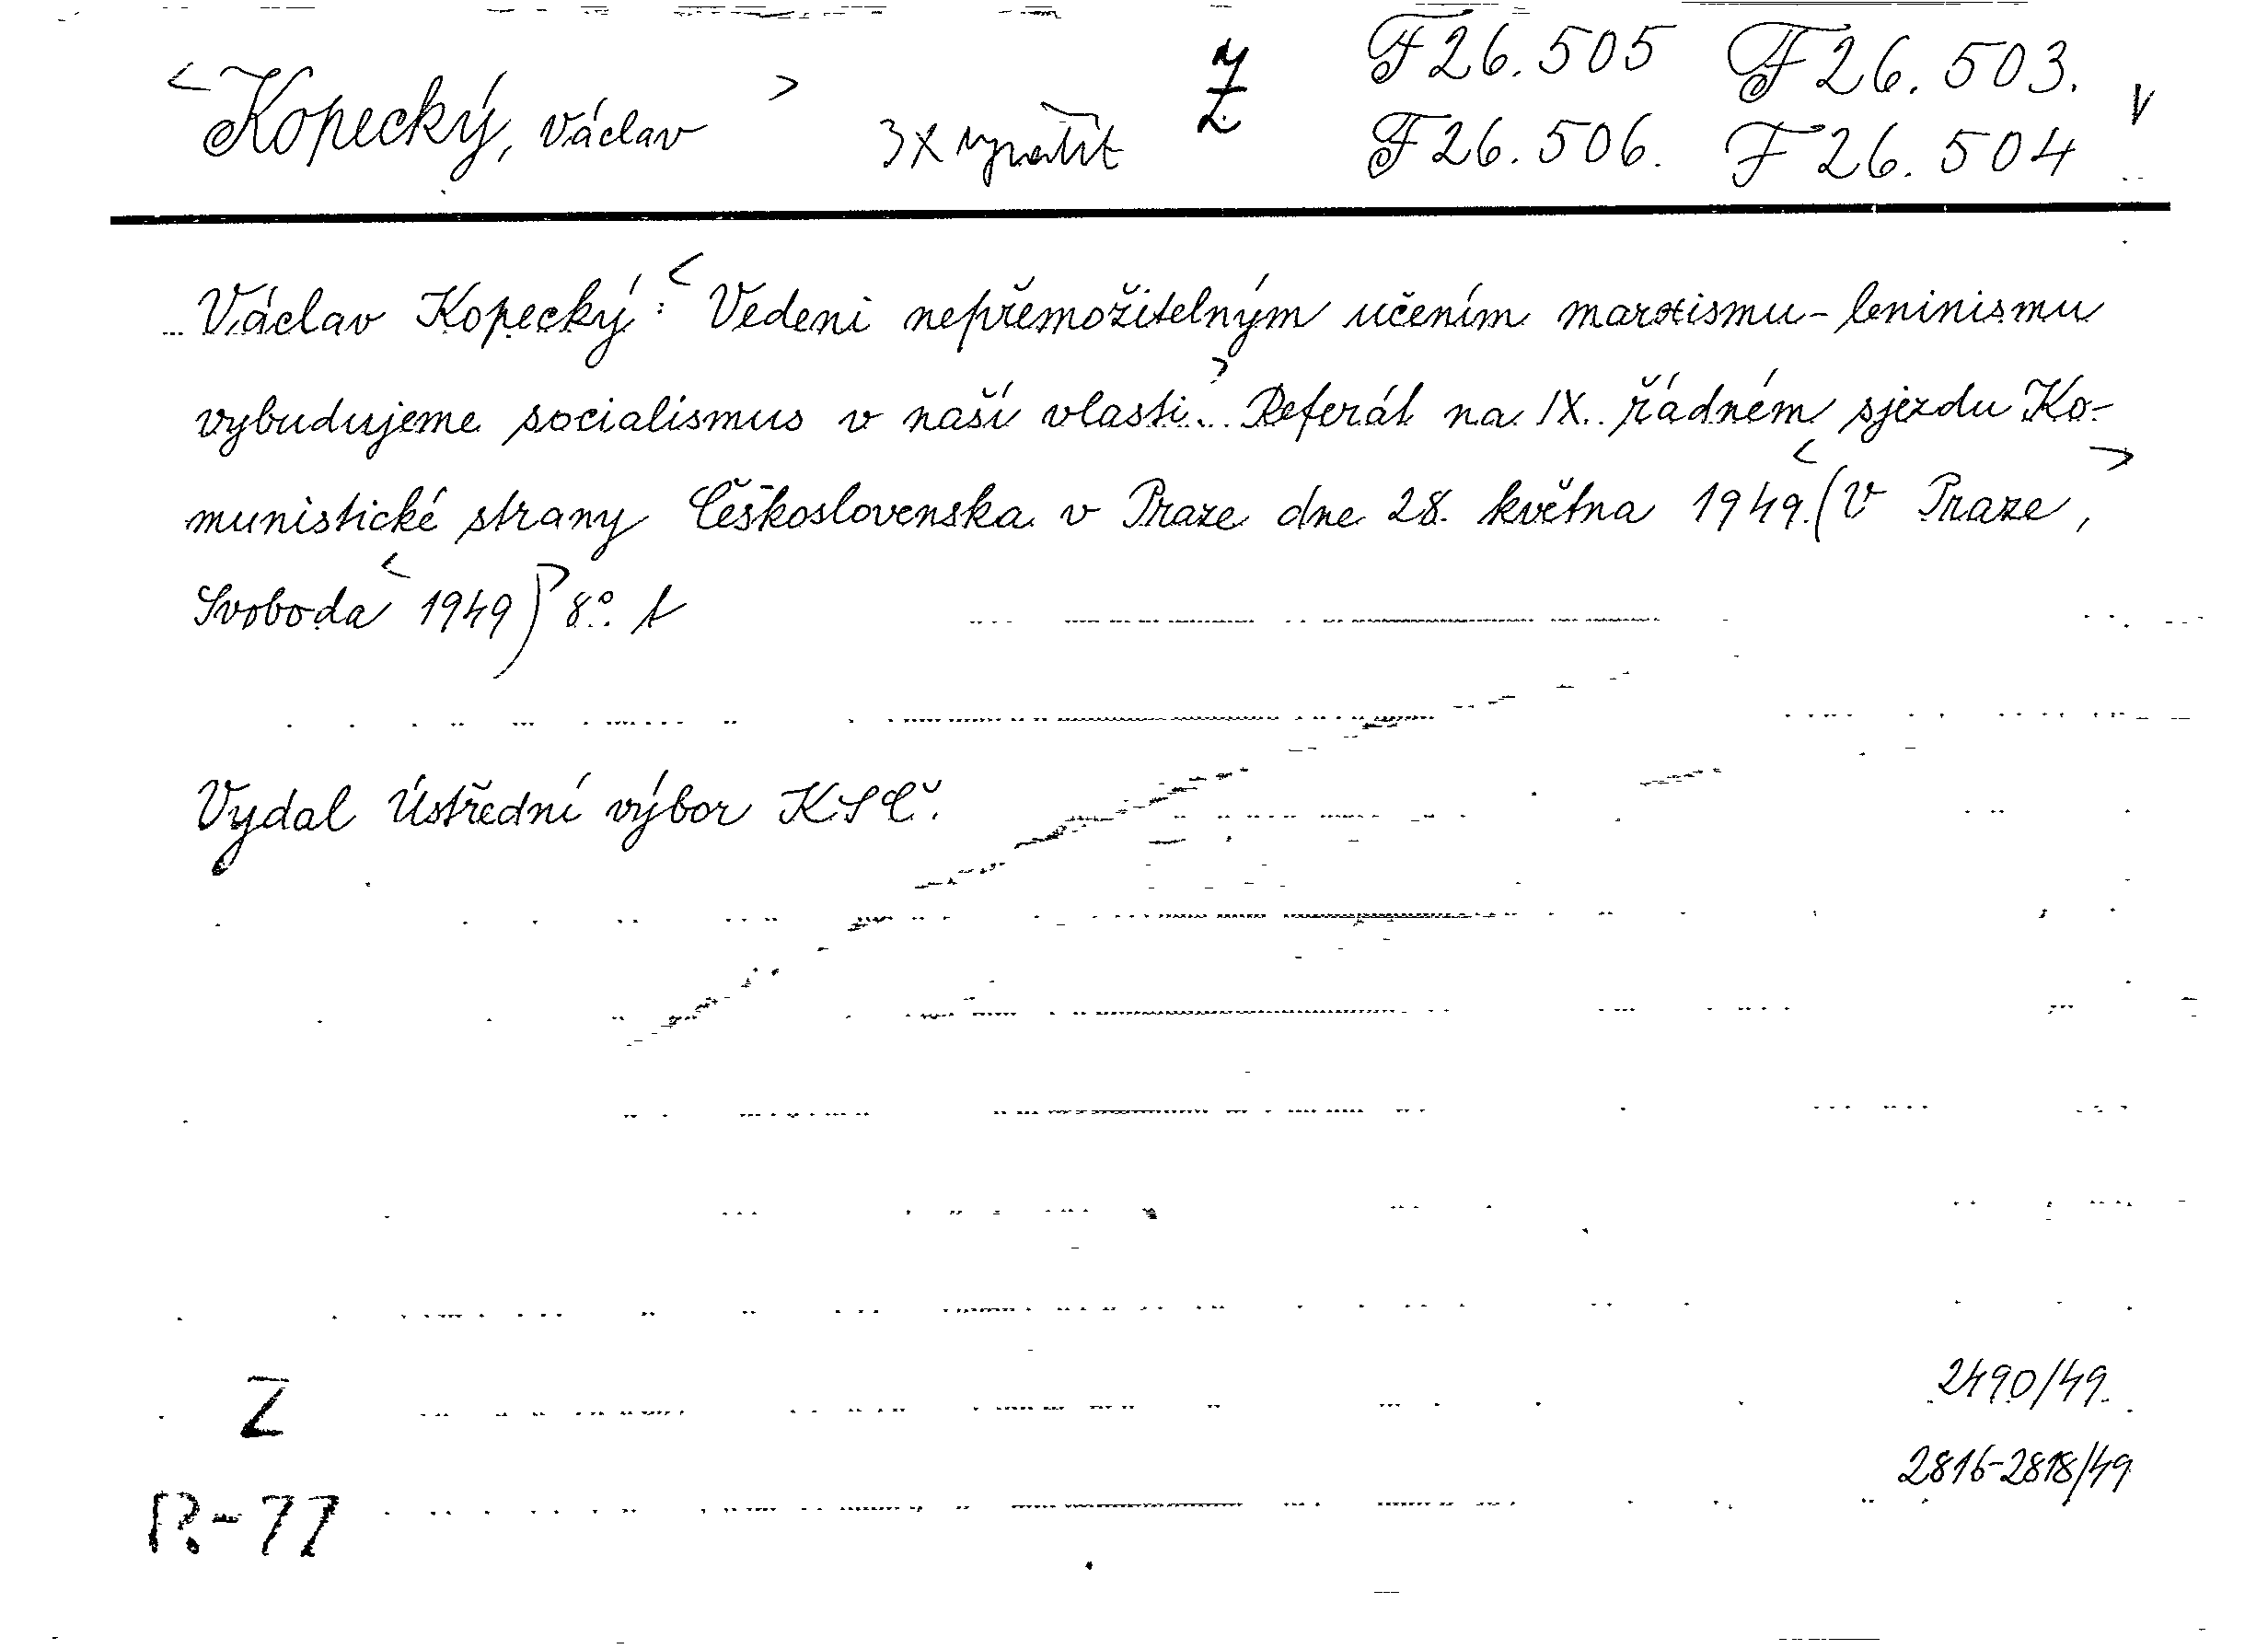 <Kopecký, Václav> 3x Z F26.505 F26.503. V
F26.506. F26.504
Václav Kopecký: <Vedeni nepřemožitelným učením marxismu-leninismu
vybudujeme socialismus v naší vlasti.> Referát na IX. řádném sjezdu Ko-
munistické strany Československa v Praze dne 28. května 1949. <(V Praze,>
Svoboda <1949)> 8°. A
Vydal Ústřední výbor KSČ.
Z 2490/49.
2816-2818/49
R-77